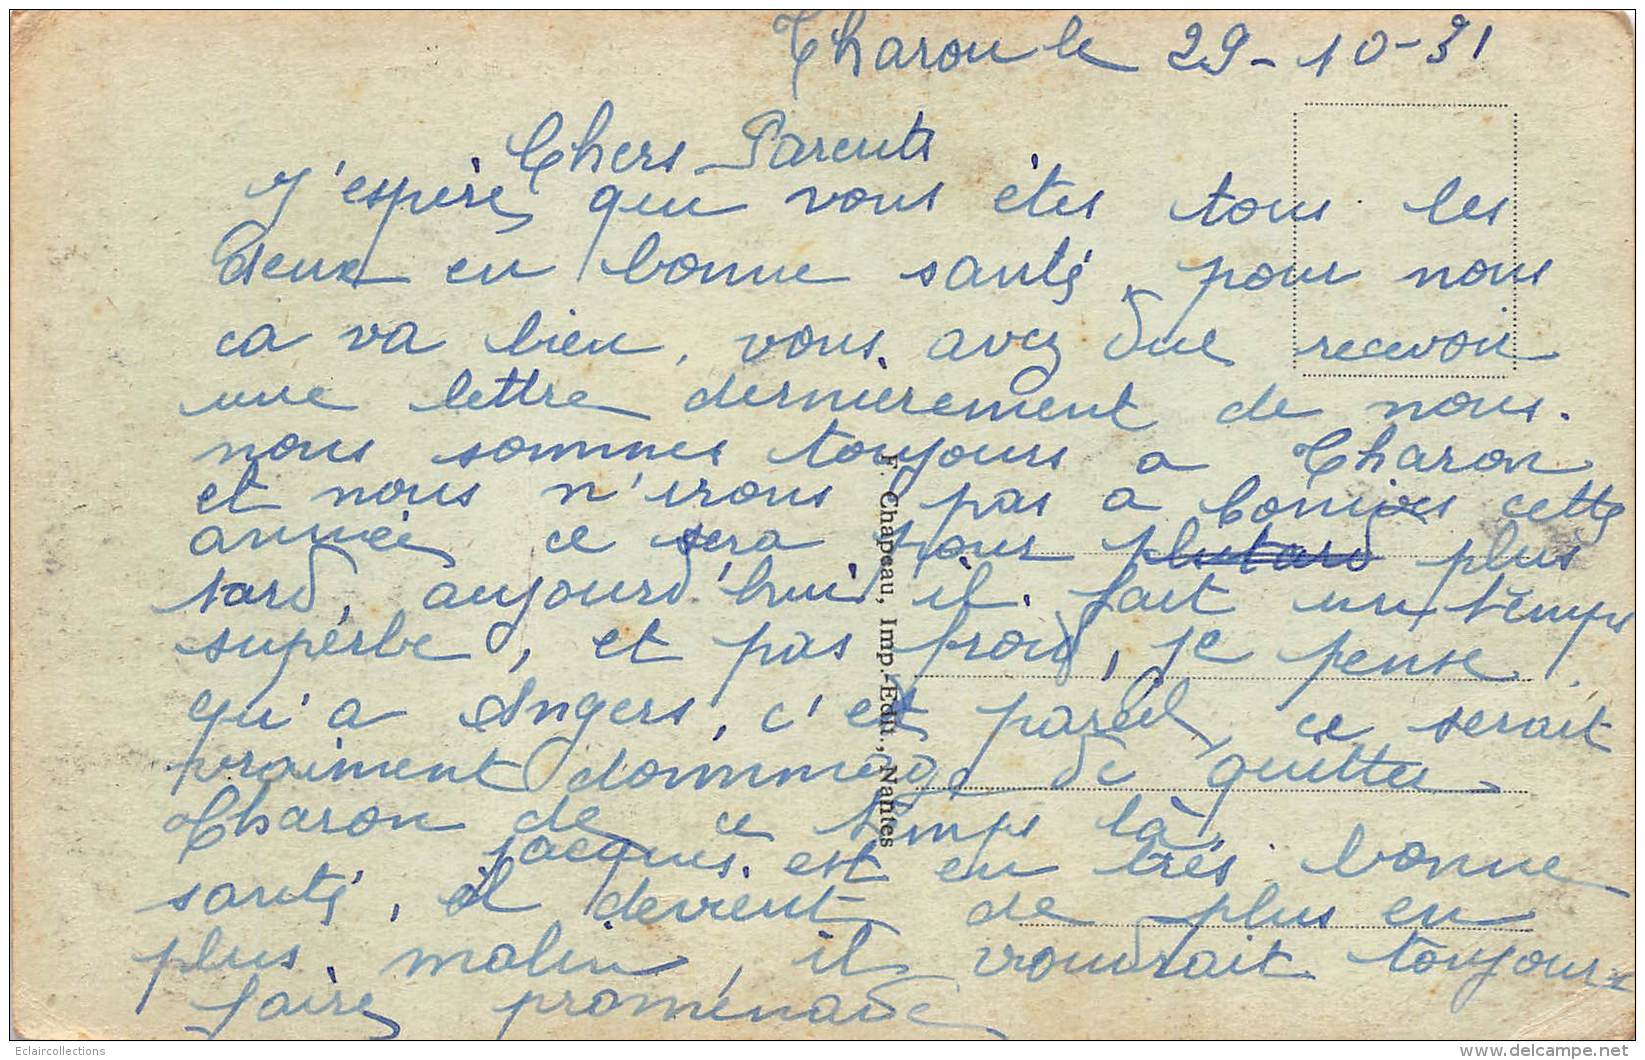 Tharon le 29-10-31
Chers Parents
J'espère que vous êtes tous les
deux en bonne santé, pour nous
ca va bien, vous avez due recevoir
une lettre dernièrement de nous.
nous sommes toujours a Tharon
et nous n'irons pas a cette
année ce sera pour plutard plus
tard, aujourd'hui il fait un temps
superbe, et pas froid, je pense
qu'a Angers, c'est pareil, ce serait
vraiment dommage de quitter
Tharon de ce temps là,
jacques est en très bonne
santé, il devient de plus en
plus malin, il voudrait toujours
faire promenade
F. Chapeau, Imp.-Edit., Nantes
Eclaircollections
www.delcampe.net